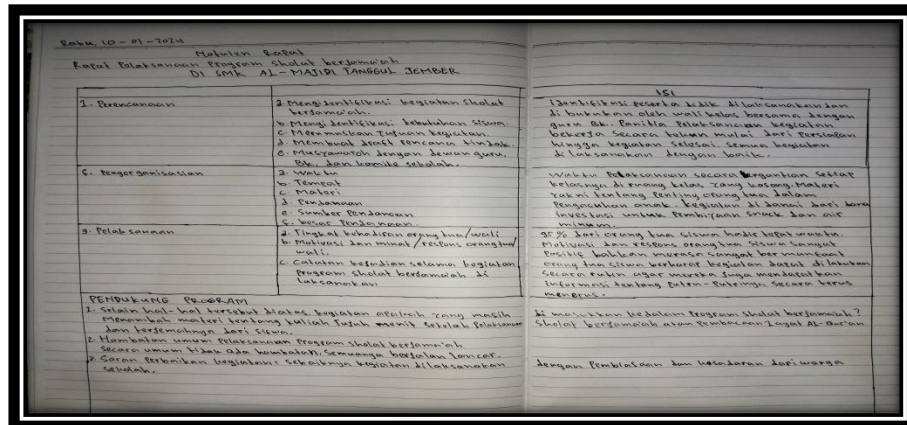 Rabu, 10 - 01 - 2024
Notulen Rapat
Rapat Pelaksanaan Program Sholat berjama'ah
DI SMK AL-MAJIDI TANGGUL JEMBER
ISI
1. Perencanaan
a. Mengidentifikasi kegiatan sholat
berjama'ah.
b. Mengidentifikasi kebutuhan siswa.
c. Merumuskan Tujuan kegiatan.
d. Membuat draft rencana tindak.
e. Musyawaroh dengan dewan guru,
BK, dan komite sekolah.
identifikasi peserta didik dilaksanakan dan
di bukukan oleh wali kelas bersama dengan
guru BK. Panitia Pelaksanaan kegiatan
bekerja secara tekun mulai dari Persiapan
hingga kegiatan selesai. semua kegiatan
dilaksanakan dengan baik.
Pengorganisasian
a. Waktu
b. Tempat
c. Materi
d. Pendanaan
e. Sumber Pendanaan
besar Pendanaan.
Waktu Pelaksanaan secara bergantian setiap
kelasnya di ruang kelas yang kosong. Materi
yakni tentang Penting orang tua dalam
Pengasuhan anak. kegiatan di danai dari dana
investasi untuk Pembiyaan snack dan air
minum.
3. Pelaksanaan
a. Tingkat kehadiran orang tua/wali
b. Motivasi dan minat/respons orang tua/
wali.
c. Catatan kejadian selama kegiatan
Program sholat berjamaiah di
laksanakan
95% dari orang tua siswa hadir tepat waktu.
Motivasi dan respons orang tua siswa sangat
Positif bahkan merasa sangat bermanfaat
orang tua siswa berharap kegiatan dapat di lakukan
secara rutin agar mereka juga mendapatkan
Informasi tentang Putra-Putrinya secara terus
menerus.
PENDUKUNG PROGRAM
1. Selain hal-hal tersebut diatas, kegiatan apalah yang masih di masukkan kedalam Program sholat berjamaah?
Menambah materi tentang kuliah Tujuh menit setelah Pelaksanaan Sholat berjama'ah atau Pembacaan AL-Qur'an
dan terjemahnya dari siswa.
2. Hambatan umum Pelaksanaan Program sholat berjama'ah.
Secara umum tidak ada hambatan, semuanya berjalan lancar.
3. Saran Perbaikan kegiatan: sebaiknya kegiatan dilaksanakan dengan Pembiasaan dan kesadaran dari warga
sekolah.